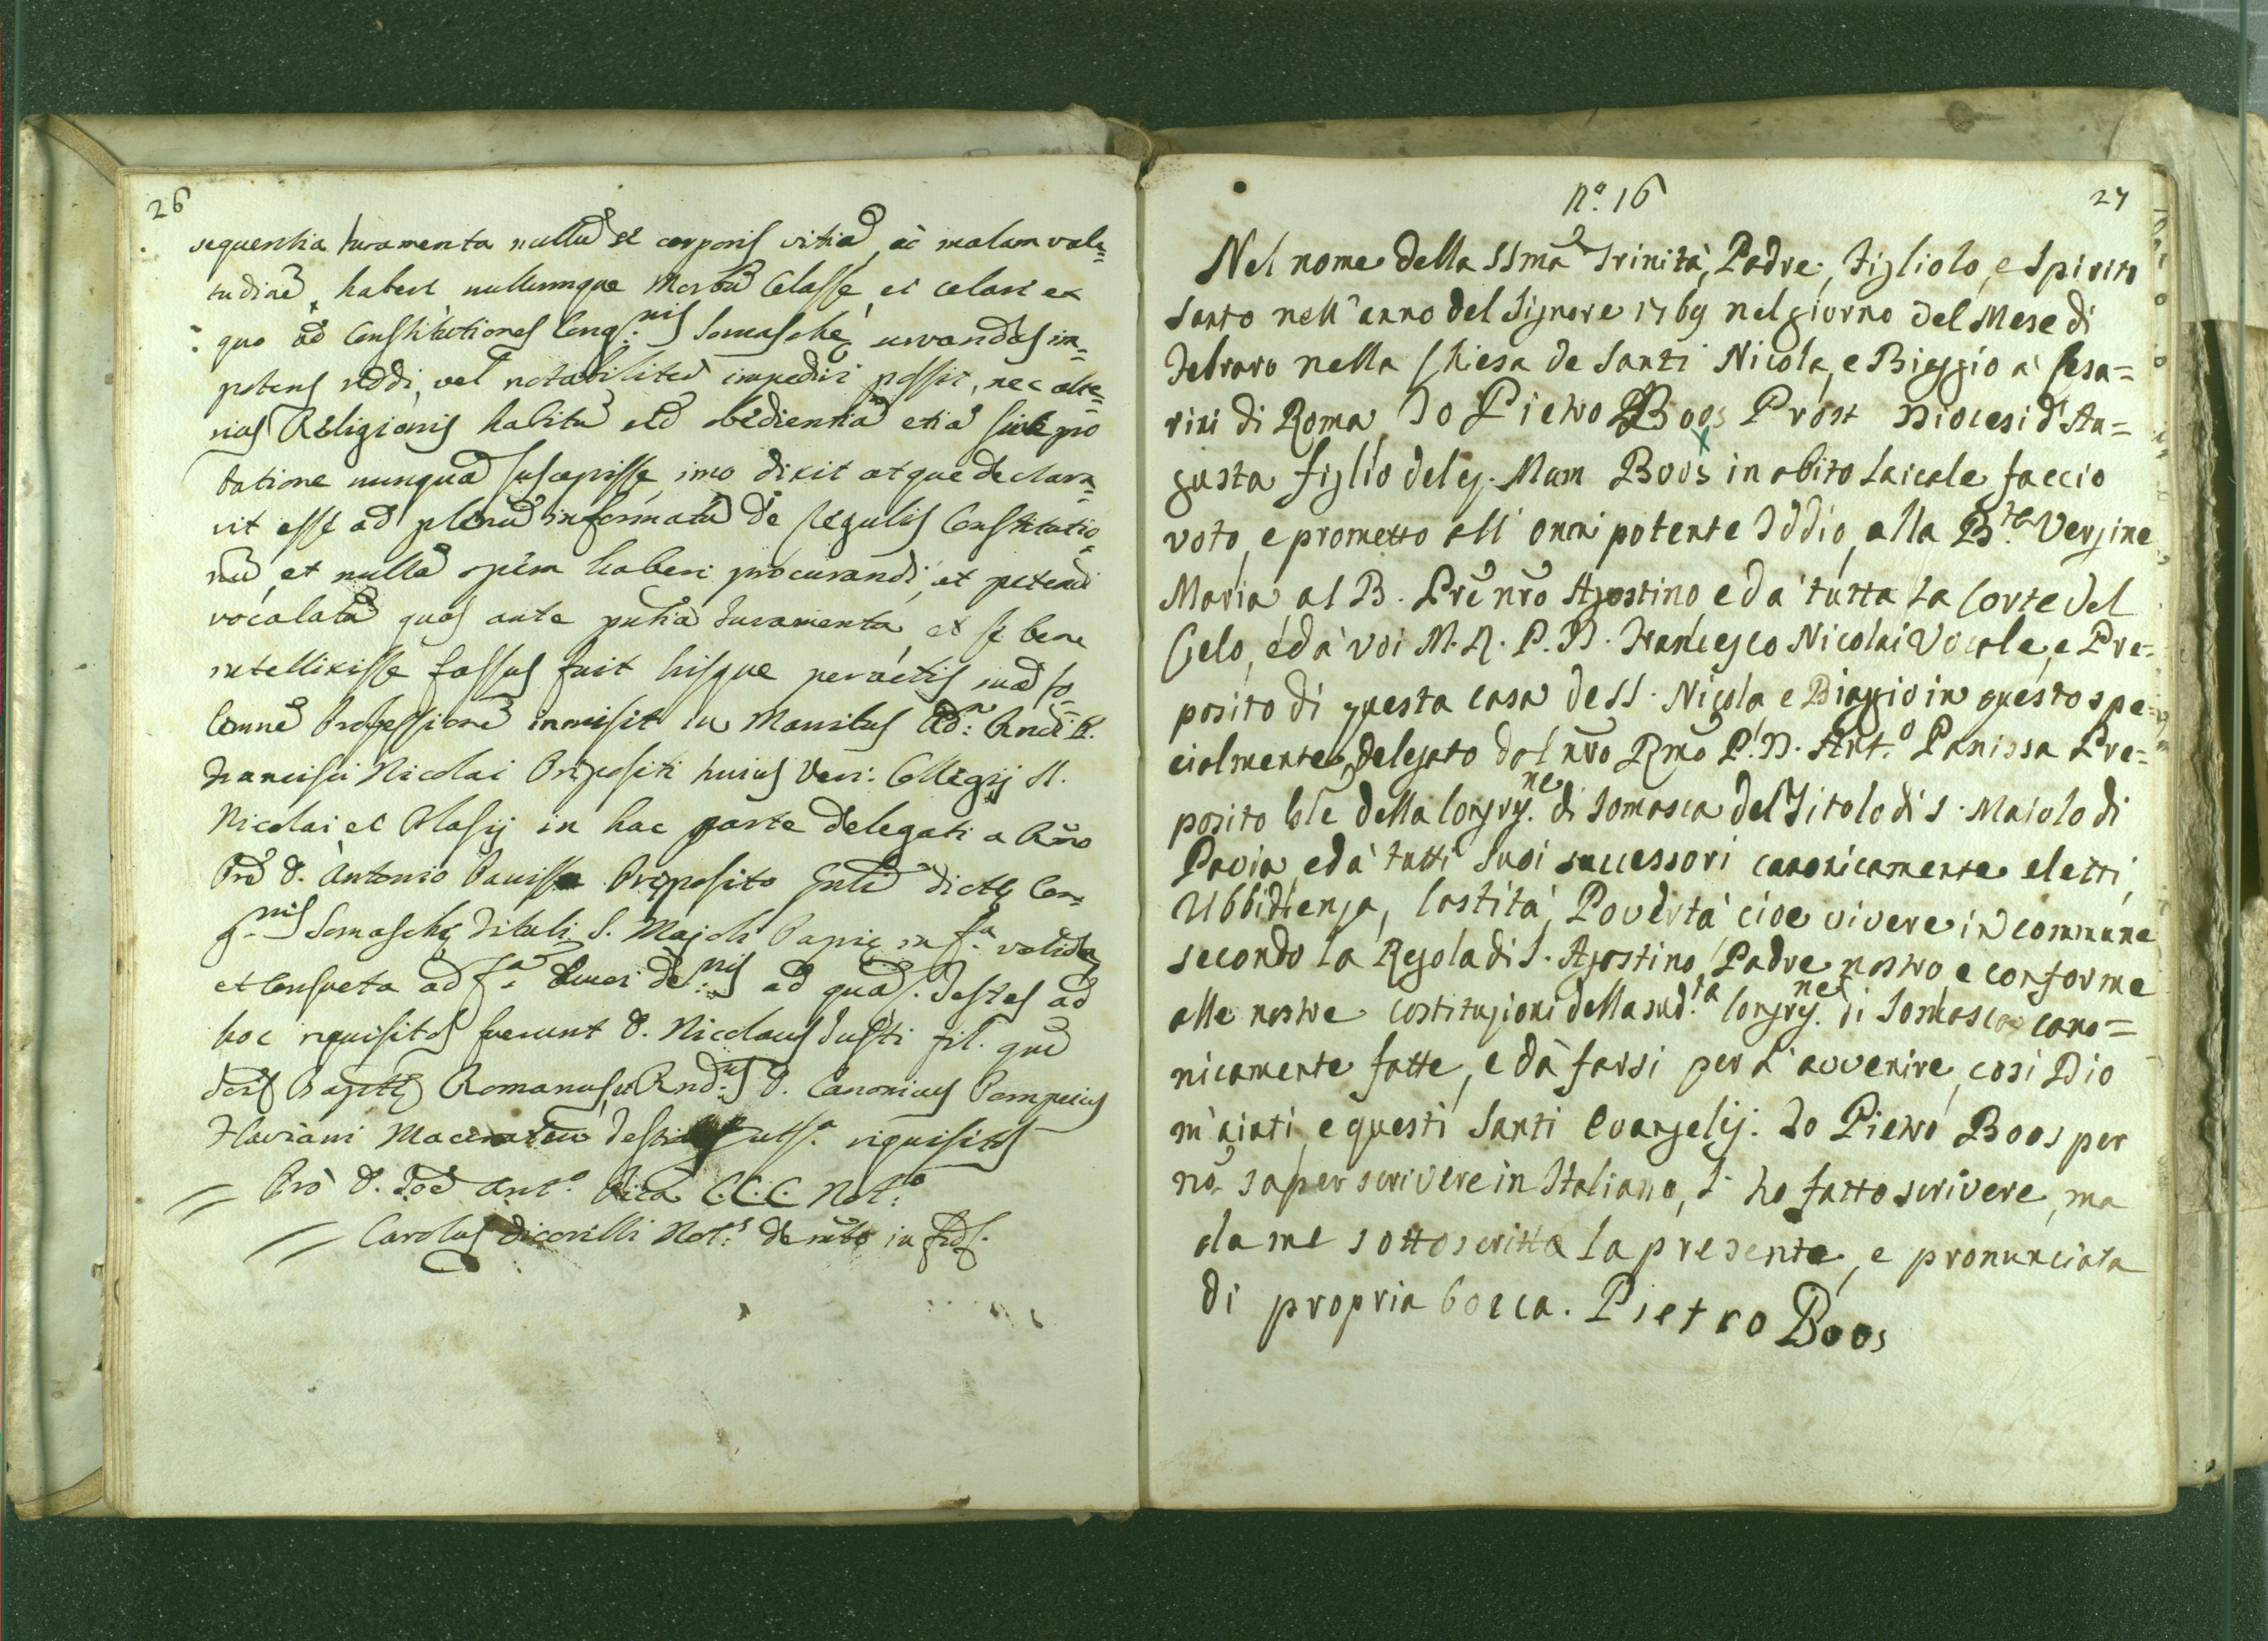 26
sequentia Iuramenta nullũ se corporis vitiũ, ac malam vale=
tudinẽ habere, nullumque Morbũ Celasse, et celare ex
quo ad Constitutiones Cong.nis Somaschę servandas im=
potens reddi, vel notabiliter impediri possit, nec alte=
rius Religionis habitũ et obedientiã etiã sine pro
batione nunquã suscepisse imo dixit atque declara=
vit esse ad plenũ informatũ de regulis Constitutio=
nũ, et nullã spem haberi procurandi, et petendi
vocalatũ quas ante Iuramenta, et se bene
intellixisse fassus fuit hisque peractis suã so=
lemnẽ Professionẽ inmisit in Manibus Adm. Rndi P.
Francisci Nicolai Prępositi huius Ven: Collegij SS.
Nicolai et Blasij in hac parte delegati a Rmo
Pre D. Antonio Panissa Pręposito Gnli dictę Con=
g.nis Somaschę Tituli S. Majoli Papię in f.a valida
et consueta ad quas. Testes ad
hoc requisitos fuerunt D. Nicolaus Iusti fil. qm̃
Romanus, et Rnd.us D. Canonicus Pompeius
Flaviani requisitis
Pro D. Ioe Ant.o C.C.C. Not.o
Carolus Not.s in fid.
Nº. 16
27
Nel nome della SSma Trinità, Padre, Figliolo, e Spirito
Santo nell'anno del Signore 1769 nel giorno del Mese di
Febraro nella Chiesa de Santi Nicola, e Biaggio a' Cesa=
rini di Roma Io Pietro Boos Prost Diocesi d'Au=
gusta figlio del q. Mam Boos in abito Laicale faccio
voto, e prometto all'onnipotente Iddio, alla B.ta Vergine
Maria al B. Pre nro Agostino, e da' tutta la Corte del
Cielo, e da' voi M. R. P. D. Francesco Nicolai Vocale, e Pre=
posito di questa casa de SS. Nicola e Biaggio in questo spe=
cialmente delegato dal nro Rmo P. D. Ant.o Panissa Pre=
posito Gle della Congrg.ne di Somasca del Titolo di S. Maiolo di
Pavia, e da' tutti suoi successori canonicamente eletti,
Ubbidienza, Castità, Povertà cioe vivere in commune
secondo la Regola di S. Agostino, Padre nostro e conforme
alle nostre costituzioni della sud.ta Congrg.ne di Somasca cano=
nicamente fatte, e da farsi per l'avvenire, cosi Dio
m'aiuti, e questi Santi Evangelij. Io Pietro Boos per
nõ saper scrivere in Italiano, l'ho fatto scrivere, ma
da me sottoscritta la presente, e pronunciata
di propria bocca. Pietro Boos